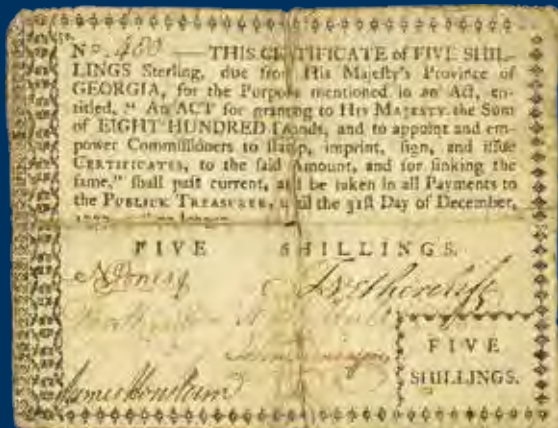 No. 480 — THIS CERTIFICATE of FIVE SHIL-
LINGS Sterling, due from His Majeſty's Province of
GEORGIA, for the Purpoſe mentioned in an Act, en-
titled, " An ACT for granting to HIS MAJESTY the Sum
of EIGHT HUNDRED Pounds, and to appoint and em-
power Commiſſioners to ſtamp, imprint, ſign, and iſſue
CERTIFICATES, to the ſaid Amount, and for ſinking the
ſame," ſhall paſt current, and be taken in all Payments to
the PUBLICK TREASURER, until the 31ſt Day of December,
FIVE SHILLINGS.
N Jones
James
FIVE
SHILLINGS.